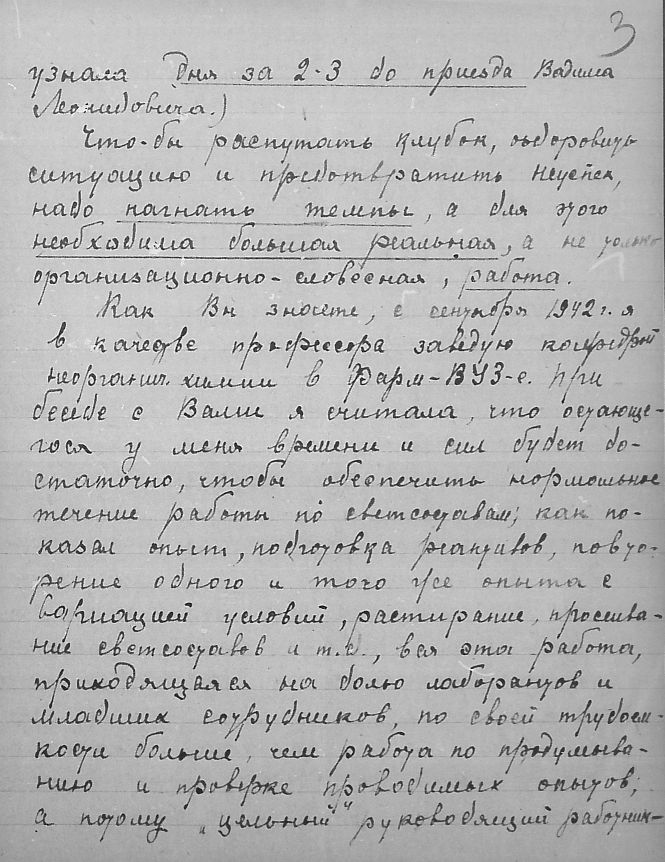 3
узнала дня за 2-3 до приезда Вадима
Леонидовича.)
Что-бы распутать клубок, оздоровить
ситуацию и предотвратить неуспех,
надо нагнать темпы, а для этого
необходима большая реальная, а не только
организационно-словесная, работа.
Как Вы знаете, с сентября 1942 г. я
в качестве профессора заведую кафедрой
неорганич. химии в Фарм-ВУЗ-е. При
беседе с Вами я считала, что остающе-
гося у меня времени и сил будет до-
статочно, чтобы обеспечить нормальное
течение работы по светсоставам; как по-
казал опыт, подготовка реактивов, повто-
рение одного и того же опыта с
вариацией условий, растирание, просеива-
ние светсоставов и т.д., вся эта работа,
приходящаяся на долю лаборантов и
младших сотрудников, по своей трудоем-
кости больше, чем работа по продумыва-
нию и проверке проводимых опытов;
а потому "цельный" руководящий работник-